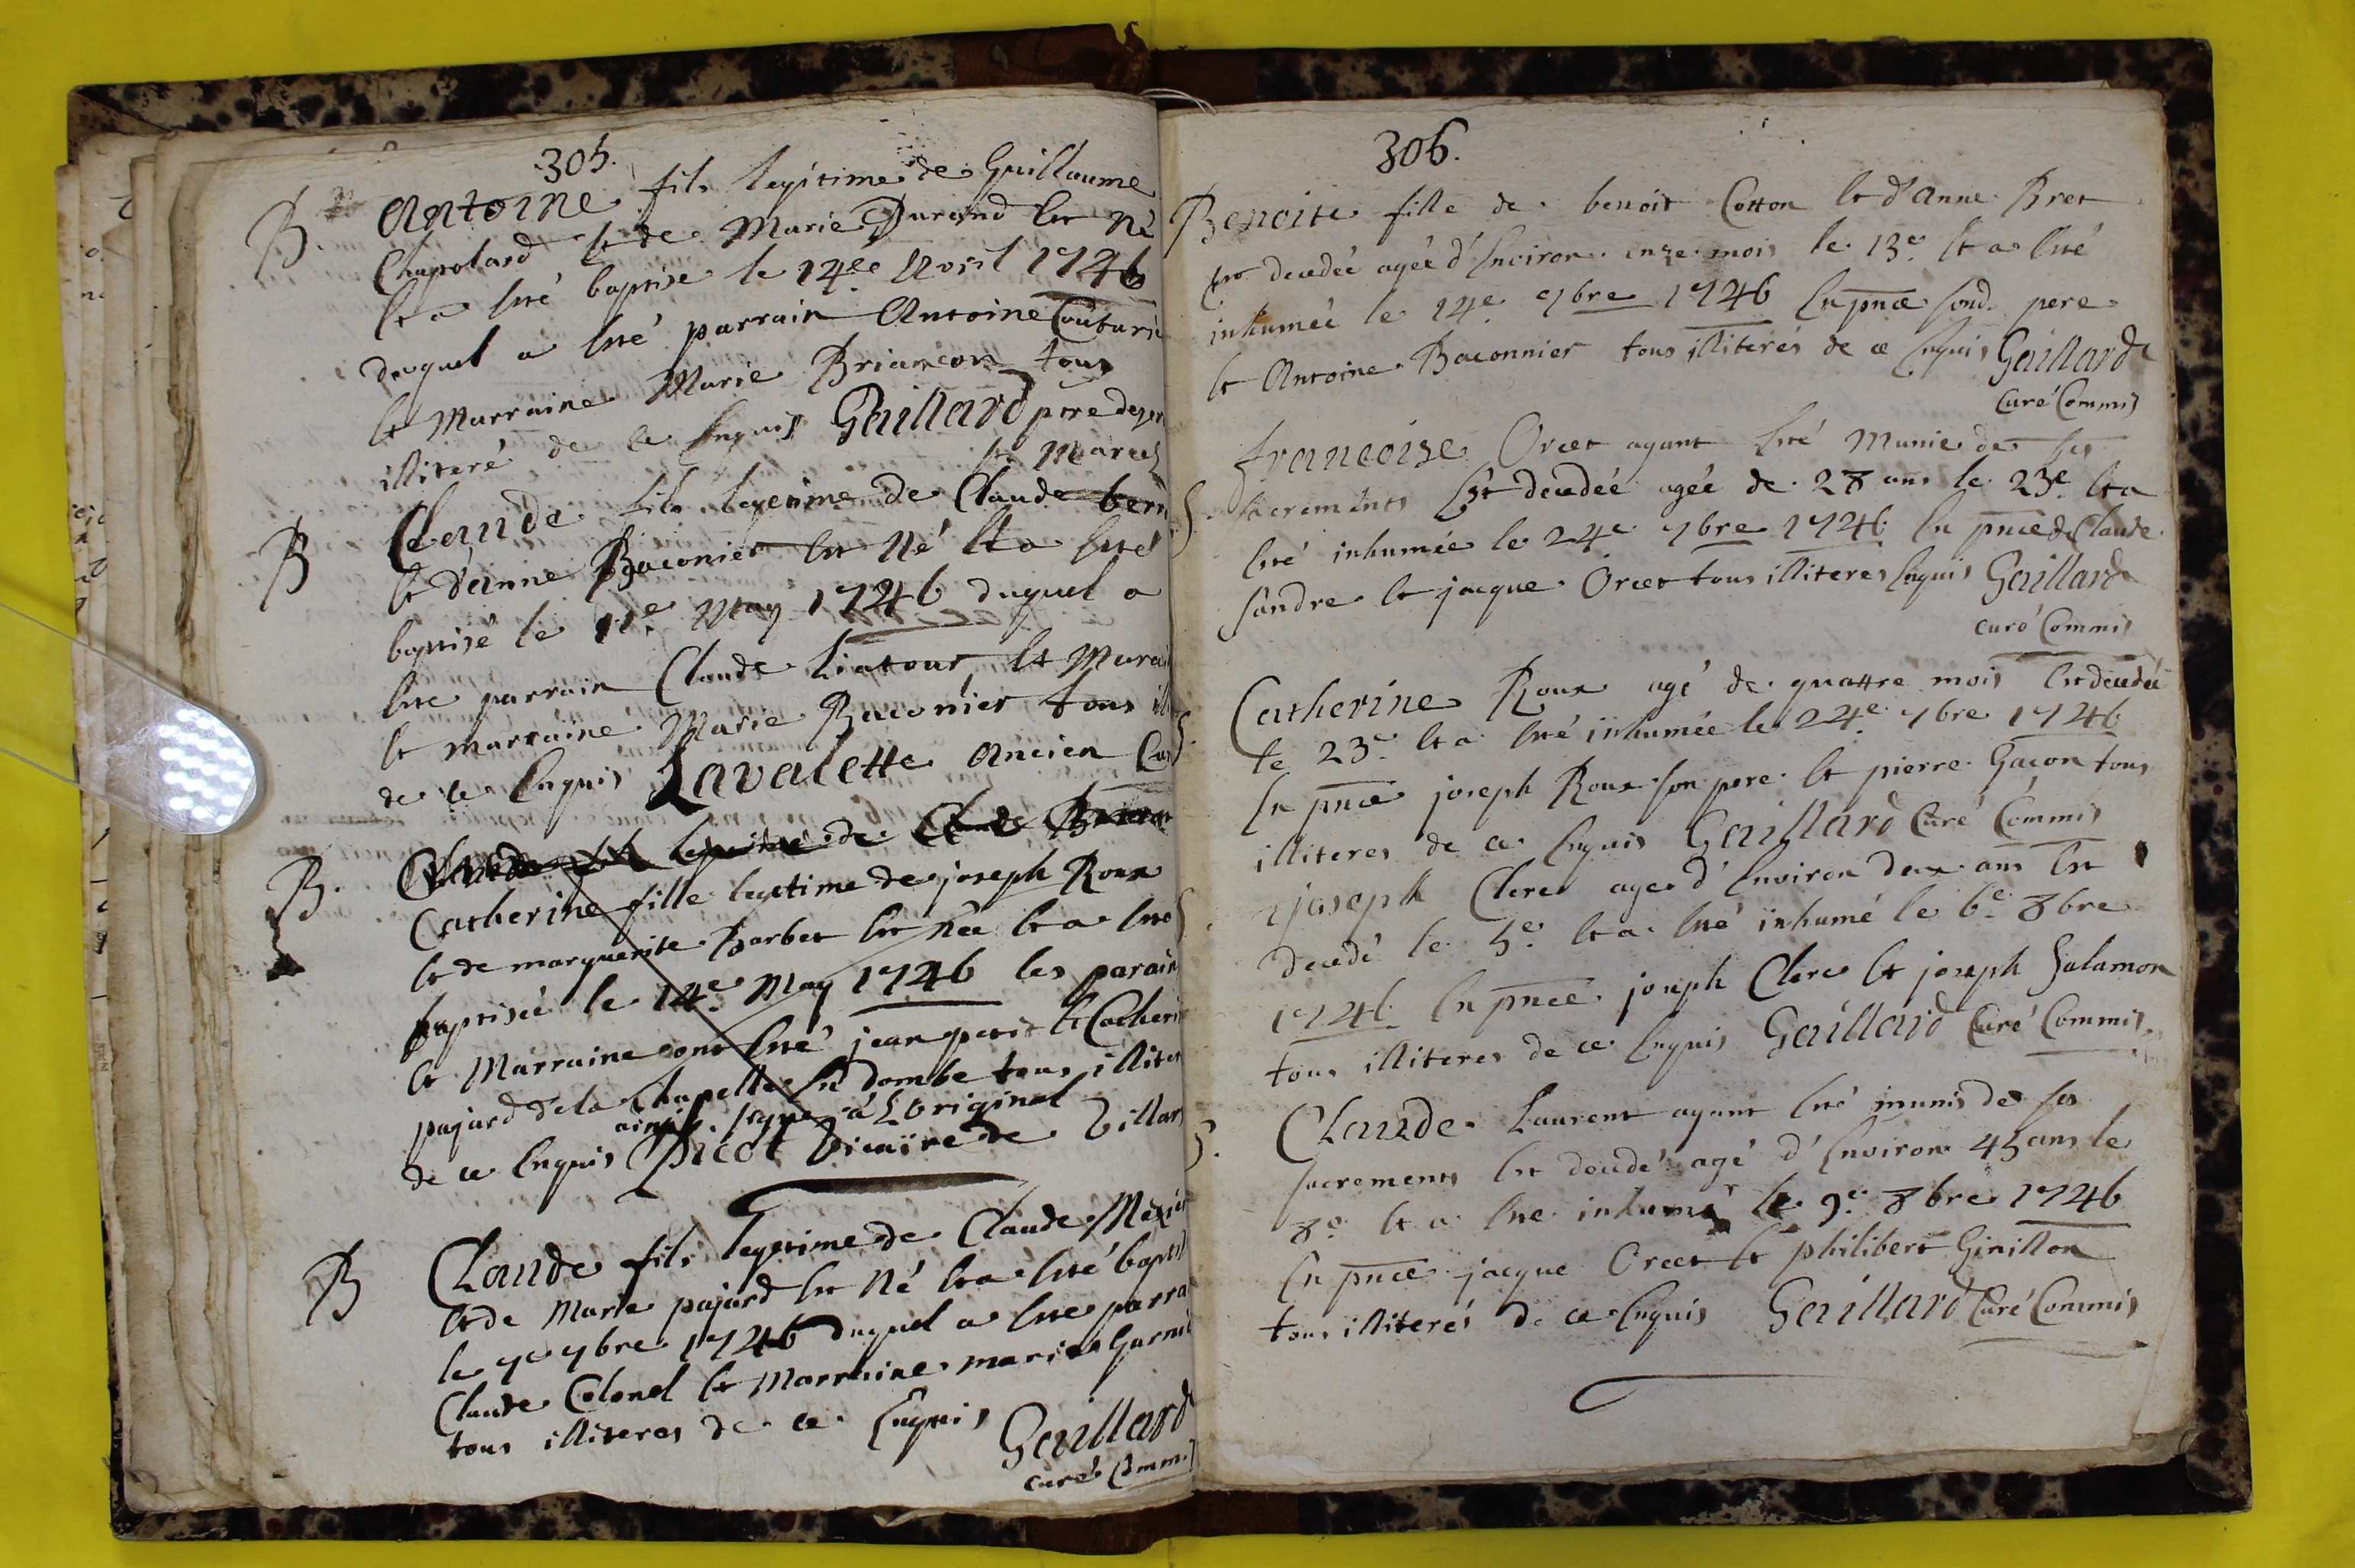 305.
B. Antoine fils legitime de Guillaume
Chapolard et de Marie Durand est né
et a été baptise le 14e Avril 1746
duquel a été parrain Antoine Couturie
et Marraine Marie Briancon tous
illiteré de ce enquis Gaillard
st Marcel
B Claude fils legitime de Claude
et d'anne Baconier est né et a été
baptisé le May 1746 duquel a
été parrain Claude et
et marraine Marie Baconier tous
de ce enquis Lavalette ancien
B. Claude fils legitime de Claude
Catherine fille legitime de joseph Roux
et de marguerite Barbet est née et a été
baptisée le 14e May 1746 les parain
et Marraine ont été jean petit et Catheri
pajard de la Chapelle en dombe tous illite
ainsi signé à L'original
de ce enquis Picot Vicaire de Villar
B Claude fils legitime de Claude
et de Marie pajard est né et a été bapti
le 7e 7bre 1746 duquel a été parra
Claude Colonel et Marraine marie Garni
tous illiteres de ce Enquis Gaillard
curé Comm.
306.
Benoite fille de benoit Cotton et d'Anne Bret
est decedée agée d'environ onze mois le 13e et a été
inhumée le 14e 7bre 1746 En pnce sond. pere
et Antoine Baconnier tous illiterés de ce enquis Gaillard
Curé Commis
S. francoise Orcet ayant été Munie de ses
sacrements Est decedée agée de 28 ans le 23e et a
été inhumée le 24e 7bre 1746 En pnce de Claude
sandre et jacque Orcet tous illiteres enquis Gaillard
curé Commis
S. Catherine Roux agé de quattre mois est decedée
le 23e et a été inhumée le 24e 7bre 1746
En pnce joseph Roux son pere et pierre Gacon tous
illiteres de ce enquis Gaillard Curé Commis
S joseph Clerc age d'Environ deux ans est
decedé le 5e et a été inhumé le 6e 8bre
1746 En pnce joseph Clerc et joseph Salamon
tous illiteres de ce enquis Gaillard Curé Commis.
S. Claude Laurent ayant été munis de ses
sacrements est decedé agé d'Environ 45 ans le
8e et a été inhumé le 9e 8bre 1746
En pnce jacque Orcet et philibert Ginillon
tous illiterés de ce enquis Gaillard Curé Commis